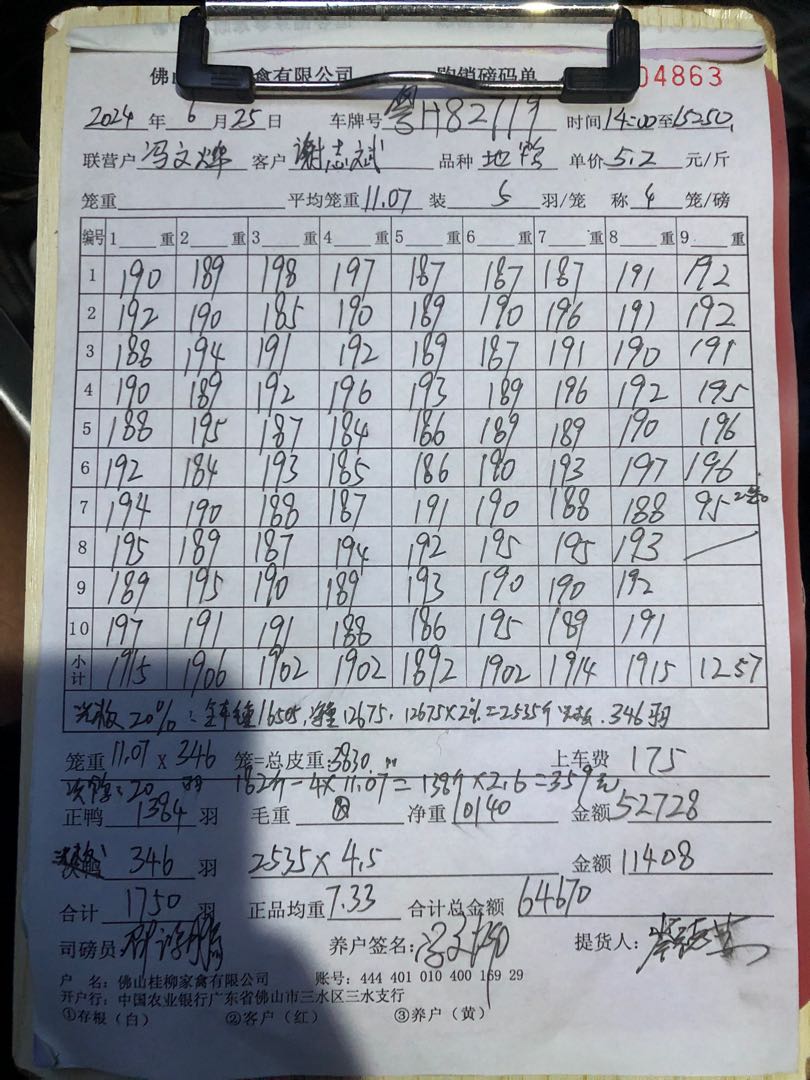 佛山 家禽有限公司 购销磅码单 04863
2024 年 6 月 25 日 车牌号 粤H82719 时间 14:00 至 15:50
联营户 冯文烨 客户 谢志斌 品种 地 单价 5.2 元/斤
笼重 平均笼重 11.07 装 5 羽/笼 称 4 笼/磅
编号 1 重 2 重 3 重 4 重 5 重 6 重 7 重 8 重 9 重
1 190 189 198 197 187 187 187 191 192
2 192 190 185 190 189 190 196 191 192
3 188 194 191 192 189 187 191 190 191
4 190 189 192 196 193 189 196 192 195
5 188 195 187 184 186 189 189 190 196
6 192 184 193 185 186 190 193 197 196
7 194 190 188 187 191 190 188 188 95 2笼
8 195 189 187 194 192 195 195 193
9 189 195 190 189 193 190 190 192
10 197 191 191 188 186 195 189 191
小计 1915 1906 1902 1902 1892 1902 1914 1915 1257
20%: 全车毛重16505, 净重12675, 12675×2%=2535斤 346羽
笼重 11.07 × 346 笼=总皮重: 3830 上车费 175
20 羽 182斤-4×11.07=138斤×2.6=359元
正鸭 1384 羽 毛重 净重 10140 金额 52728
346 羽 2535×4.5 金额 11408
合计 1750 羽 正品均重 7.33 合计总金额 64670
司磅员: 养户签名: 冯文烨 提货人:
户 名: 佛山桂柳家禽有限公司 账号: 444 401 010 400 169 29
开户行: 中国农业银行广东省佛山市三水区三水支行
①存根(白) ②客户(红) ③养户(黄)